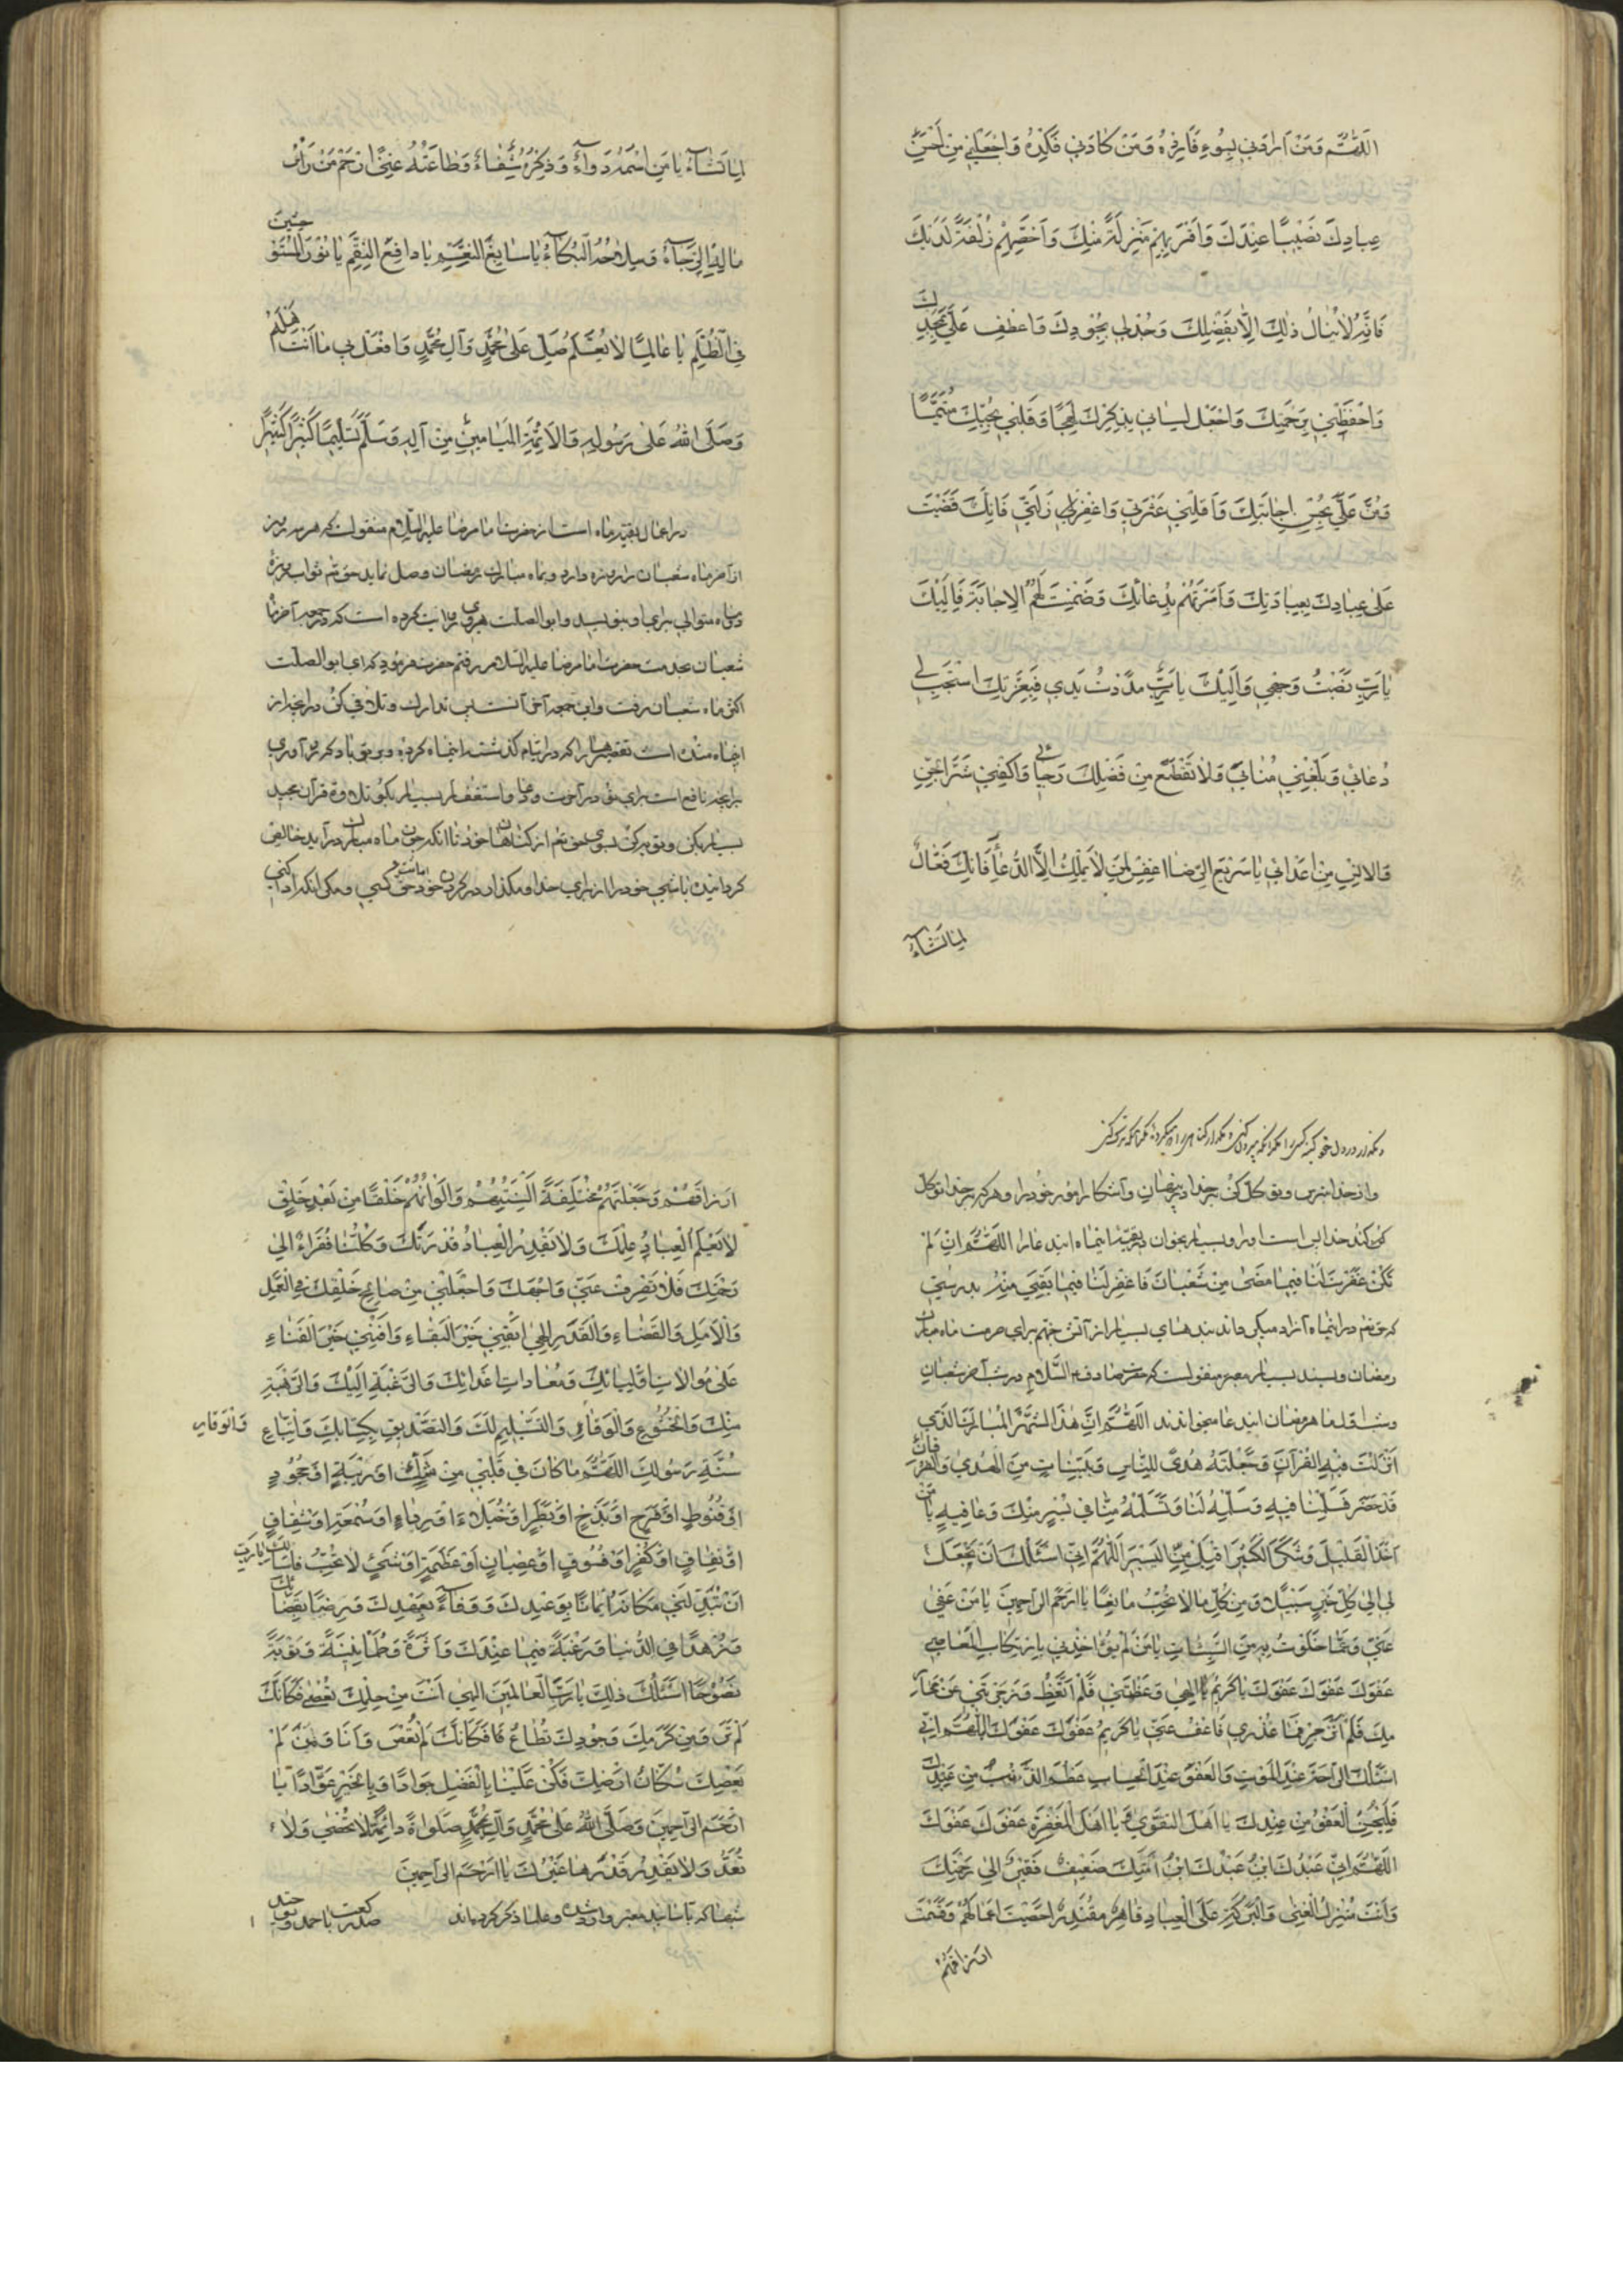 اللّٰهُمَّ وَمَنْ اَرادَني بِسُوءٍ فَاَرِدْهُ وَمَنْ كادَني فَكِدْهُ وَاجْعَلْني مِنْ اَحْسَنِ
عِبادِكَ نَصيبًا عِنْدَكَ وَاَقْرَبِهِمْ مَنْزِلَةً مِنْكَ وَاَخَصِّهِمْ زُلْفَةً لَدَيْكَ
فَاِنَّهُ لا يُنالُ ذٰلِكَ اِلّا بِفَضْلِكَ وَجُدْ لي بِجُودِكَ وَاعْطِفْ عَلَيَّ بِمَجْدِكَ
وَاحْفَظْني بِرَحْمَتِكَ وَاجْعَلْ لِساني بِذِكْرِكَ لَهِجًا وَقَلْبي بِحُبِّكَ مُتَيَّمًا
وَمُنَّ عَلَيَّ بِحُسْنِ اِجابَتِكَ وَاَقِلْني عَثْرَتي وَاغْفِرْ لي زَلَّتي فَاِنَّكَ قَضَيْتَ
عَلىٰ عِبادِكَ بِعِبادَتِكَ وَاَمَرْتَهُمْ بِدُعائِكَ وَضَمِنْتَ لَهُمُ الاِجابَةَ فَاِلَيْكَ
يا رَبِّ نَصَبْتُ وَجْهي وَاِلَيْكَ يا رَبِّ مَدَدْتُ يَدي فَبِعِزَّتِكَ اسْتَجِبْ لي
دُعائي وَبَلِّغْني مُنايَ وَلا تَقْطَعْ مِنْ فَضْلِكَ رَجائي وَاكْفِني شَرَّ الْجِنِّ
وَالاِنْسِ مِنْ اَعْدائي يا سَريعَ الرِّضا اغْفِرْ لِمَنْ لا يَمْلِكُ اِلَّا الدُّعاءَ فَاِنَّكَ فَعّالٌ
لِما تَشاءُ
لِما تَشاءُ يا مَنِ اسْمُهُ دَواءٌ وَذِكْرُهُ شِفاءٌ وَطاعَتُهُ غِنًى ارْحَمْ مَنْ رَأْسُ
مالِهِ الرَّجاءُ وَسِلاحُهُ الْبُكاءُ يا سابِغَ النِّعَمِ يا دافِعَ النِّقَمِ يا نُورَ الْمُسْتَوْحِشينَ
فِي الظُّلَمِ يا عالِمًا لا يُعَلَّمُ صَلِّ عَلىٰ مُحَمَّدٍ وَآلِ مُحَمَّدٍ وَافْعَلْ بي ما اَنْتَ اَهْلُهُ
وَصَلَّى اللّٰهُ عَلىٰ رَسُولِهِ وَالاَئِمَّةِ الْمَيامينَ مِنْ آلِهِ وَسَلَّمَ تَسْليمًا كَثيرًا كَثيرًا
در اعمال بقیه ماه است از حضرت امام رضا علیه السلام منقولست که هر که سه روز
از آخر ماه شعبان را روزه دارد و بماه مبارک رمضان وصل نماید حق تعالی ثواب روزه
دو ماه متوالی برای او بنویسد و ابو الصلت هروی روایت کرده است که در جمعه آخر ماه
شعبان بخدمت حضرت امام رضا علیه السلام رفتم حضرت فرمود که ای ابو الصلت
اکثر ماه شعبان رفت و این جمعه آخر آنست پس تدارک و تلافی کن در آنچه از
اینماه مانده است تقصیرهائی را که در ایام گذشته اینماه کرده و بر تو باد که رو آوری
بر آنچه نافع است برای تو در آخرت و دعا و استغفار بسیار بکن و تلاوة قرآن مجید
بسیار بکن و توبه کن بسوی حق تعالی از گناهان خود تا آنکه چون ماه مبارک در آید خالص
گردانیده باشی خود را از برای خدا و مگذار در گردن خود امانت و حق کسی مگر آنکه ادا کنی
و مگذار در دل خود کینه کسی را مگر آنکه بیرون کنی و مگذار گناهی را که میکرده مگر آنکه ترک کنی
و از خدا بترس و توکل کن بر خدا در پنهان و آشکار امور خود را و هر که بر خدا توکل
کند خدا بس است او را و بسیار بخوان در بقیه اینماه این دعا را اللّٰهُمَّ اِنْ لَمْ
تَكُنْ غَفَرْتَ لَنا فيما مَضىٰ مِنْ شَعْبانَ فَاغْفِرْ لَنا فيما بَقِيَ مِنْهُ بدرستی
که حق تعالی در اینماه آزاد میگرداند بنده‌های بسیار از آتش جهنم برای حرمت ماه مبارک
رمضان و بسند بسیار معتبر منقولست که حضرت صادق علیه السلام در شب آخر شعبان
و شب اول ماه رمضان این دعا میخواندند اللّٰهُمَّ اِنَّ هٰذَا الشَّهْرَ الْمُبارَكَ الَّذي
اَنْزَلْتَ فيهِ الْقُرْآنَ وَجَعَلْتَهُ هُدًى لِلنّاسِ وَبَيِّناتٍ مِنَ الْهُدىٰ وَالْفُرْقانِ
قَدْ حَضَرَ فَسَلِّمْنا فيهِ وَسَلِّمْهُ لَنا وَتَسَلَّمْهُ مِنّا في يُسْرٍ مِنْكَ وَعافِيَةٍ يا مَنْ
اَخَذَ الْقَليلَ وَشَكَرَ الْكَثيرَ اقْبَلْ مِنِّي الْيَسيرَ اللّٰهُمَّ اِنّي اَسْئَلُكَ اَنْ تَجْعَلَ
لي اِلىٰ كُلِّ خَيْرٍ سَبيلًا وَمِنْ كُلِّ ما لا تُحِبُّ مانِعًا يا اَرْحَمَ الرّاحِمينَ يا مَنْ عَفىٰ
عَنّي وَعَمّا خَلَوْتُ بِهِ مِنَ السَّيِّئاتِ يا مَنْ لَمْ يُؤاخِذْني بِارْتِكابِ الْمَعاصي
عَفْوَكَ عَفْوَكَ عَفْوَكَ يا كَريمُ اِلٰهي وَعَظْتَني فَلَمْ اَتَّعِظْ وَزَجَرْتَني عَنْ مَحارِ
مِكَ فَلَمْ اَنْزَجِرْ فَما عُذْري فَاعْفُ عَنّي يا كَريمُ عَفْوَكَ عَفْوَكَ اللّٰهُمَّ اِنّي
اَسْئَلُكَ الرّاحَةَ عِنْدَ الْمَوْتِ وَالْعَفْوَ عِنْدَ الْحِسابِ عَظُمَ الذَّنْبُ مِنْ عَبْدِكَ
فَلْيَحْسُنِ الْعَفْوُ مِنْ عِنْدِكَ يا اَهْلَ التَّقْوىٰ وَيا اَهْلَ الْمَغْفِرَةِ عَفْوَكَ عَفْوَكَ
اللّٰهُمَّ اِنّي عَبْدُكَ ابْنُ عَبْدِكَ ابْنُ اَمَتِكَ ضَعيفٌ فَقيرٌ اِلىٰ رَحْمَتِكَ
وَاَنْتَ مُنْزِلُ الْغِنىٰ وَالْبَرَكَةِ عَلَى الْعِبادِ قاهِرٌ مُقْتَدِرٌ اَحْصَيْتَ اَعْمالَهُمْ وَقَسَمْتَ
اَرْزاقَهُمْ
اَرْزاقَهُمْ وَجَعَلْتَهُمْ مُخْتَلِفَةً اَلْسِنَتُهُمْ وَاَلْوانُهُمْ خَلْقًا مِنْ بَعْدِ خَلْقٍ
لا يَعْلَمُ الْعِبادُ عِلْمَكَ وَلا يَقْدِرُ الْعِبادُ قَدْرَتَكَ وَكُلُّنا فُقَراءُ اِلىٰ
رَحْمَتِكَ فَلا تَصْرِفْ عَنّي وَجْهَكَ وَاجْعَلْني مِنْ صالِحِ خَلْقِكَ فِي الْعَمَلِ
وَالْاَمَلِ وَالْقَضاءِ وَالْقَدَرِ اِلٰهي اَبْقِني خَيْرَ الْبَقاءِ وَاَفْنِني خَيْرَ الْفَناءِ
عَلىٰ مُوالاتِ اَوْلِيائِكَ وَمُعاداتِ اَعْدائِكَ وَالرَّغْبَةِ اِلَيْكَ وَالرَّهْبَةِ
مِنْكَ وَالْخُشُوعِ وَالْوَفاءِ وَالتَّسْليمِ لَكَ وَالتَّصْديقِ بِكِتابِكَ وَاتِّباعِ
وَالْوَقارِ
سُنَّةِ رَسُولِكَ اللّٰهُمَّ ما كانَ في قَلْبي مِنْ شَكٍّ اَوْ رَيْبَةٍ اَوْ جُحُودٍ
اَوْ قُنُوطٍ اَوْ فَرَحٍ اَوْ بَذَخٍ اَوْ بَطَرٍ اَوْ خُيَلاءَ اَوْ رِياءٍ اَوْ سُمْعَةٍ اَوْ شِقاقٍ
اَوْ نِفاقٍ اَوْ كُفْرٍ اَوْ فُسُوقٍ اَوْ عِصْيانٍ اَوْ عَظَمَةٍ اَوْ شَيْءٍ لا تُحِبُّ فَاَسْئَلُكَ يا رَبِّ
اَنْ تُبَدِّلَني مَكانَهُ ايمانًا بِوَعْدِكَ وَوَفاءً بِعَهْدِكَ وَرِضًا بِقَضائِكَ
وَزُهْدًا فِي الدُّنْيا وَرَغْبَةً فيما عِنْدَكَ وَاَثَرَةً وَطُمَأْنينَةً وَتَوْبَةً
نَصُوحًا اَسْئَلُكَ ذٰلِكَ يا رَبَّ الْعالَمينَ اِلٰهي اَنْتَ مِنْ حِلْمِكَ تُعْصىٰ فَكَاَنَّكَ
لَمْ تَرَ وَمِنْ كَرَمِكَ وَجُودِكَ تُطاعُ فَكَاَنَّكَ لَمْ تُعْصَ وَاَنَا وَمَنْ لَمْ
يَعْصِكَ سُكّانُ اَرْضِكَ فَكُنْ عَلَيْنا بِالْفَضْلِ جَوادًا وَبِالْخَيْرِ عَوّادًا يا
اَرْحَمَ الرّاحِمينَ وَصَلَّى اللّٰهُ عَلىٰ مُحَمَّدٍ وَآلِ مُحَمَّدٍ صَلٰواةً دائِمَةً لا تُحْصىٰ وَلا
تُعَدُّ وَلا يَقْدِرُ قَدْرَها غَيْرُكَ يا اَرْحَمَ الرّاحِمينَ